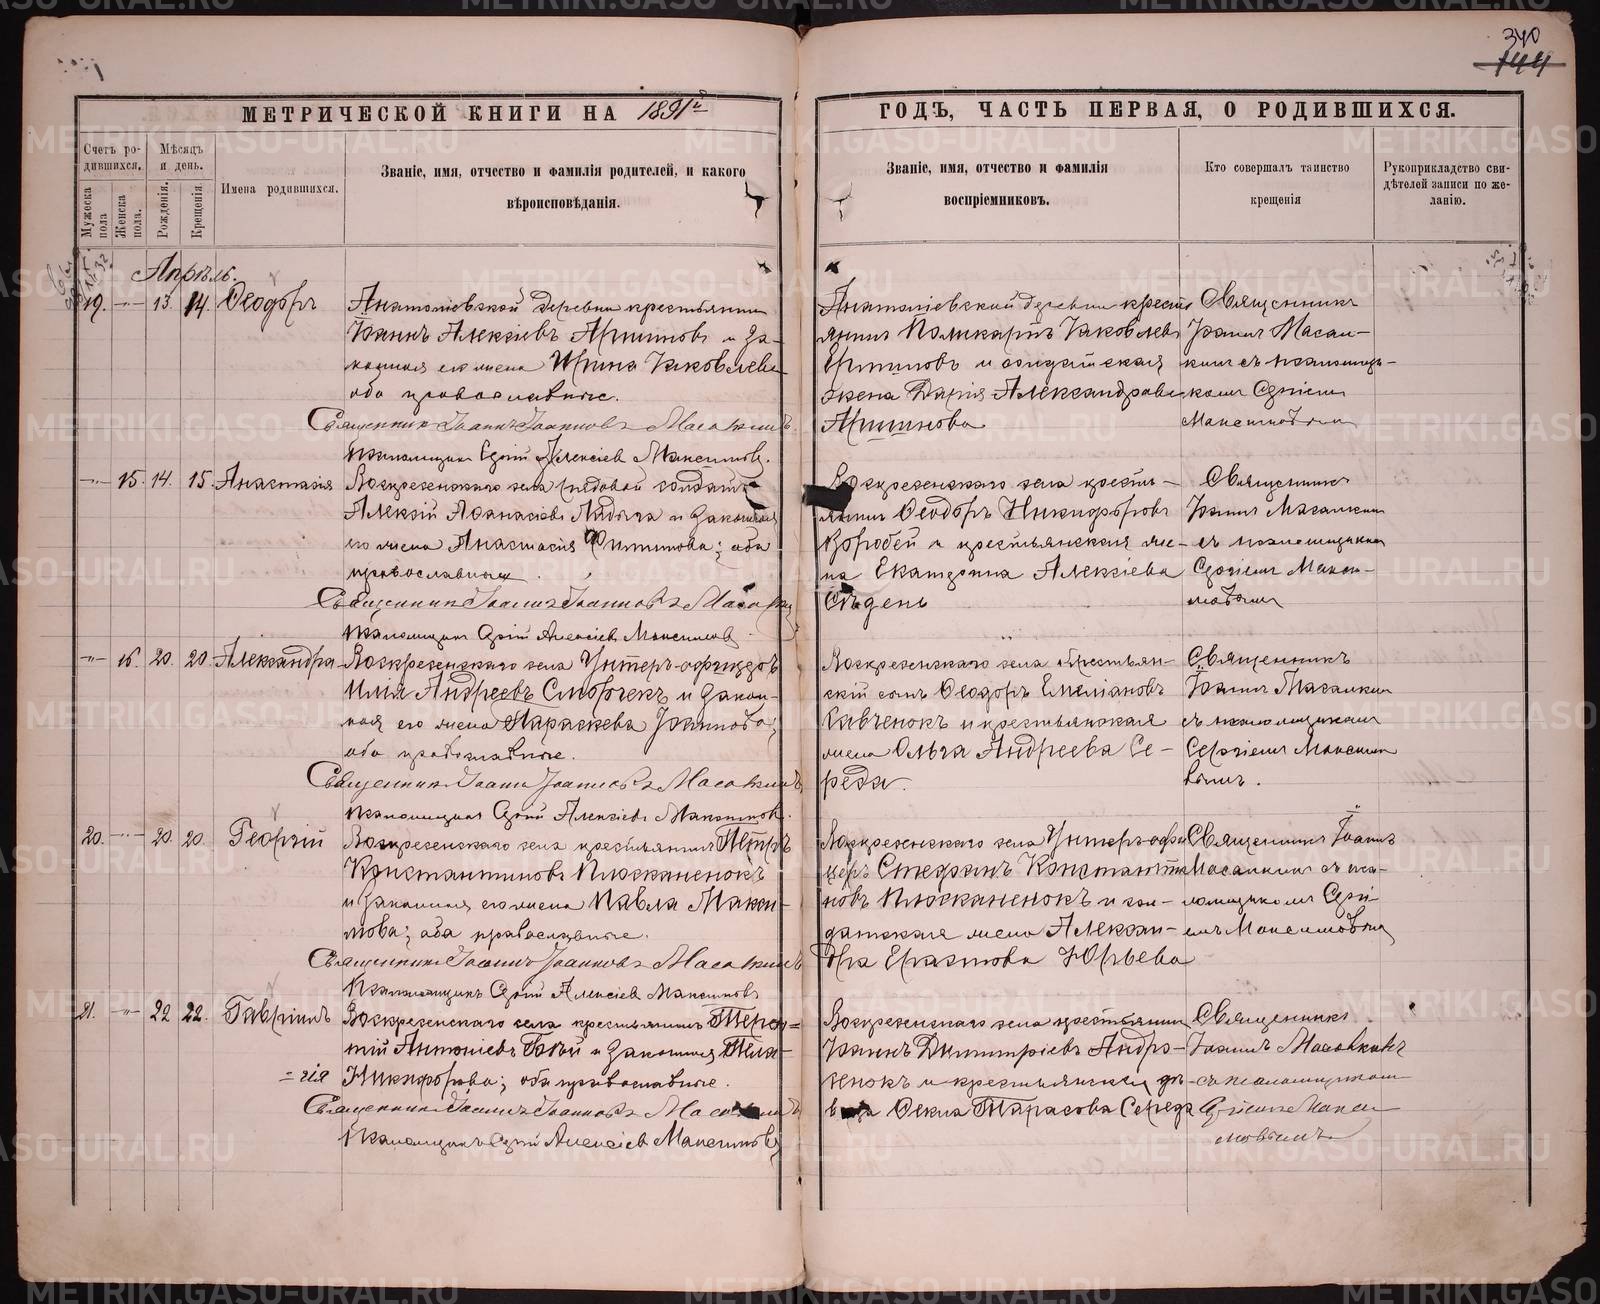 340
144
МЕТРИЧЕСКОЙ КНИГИ НА 1891й
ГОДЪ, ЧАСТЬ ПЕРВАЯ, О РОДИВШИХСЯ.
Счетъ ро-
дившихся.
Мѣсяцъ
и день.
Мужеска
пола
Женска
пола.
Рожденія.
Крещенія.
Имена родившихся.
Званіе, имя, отчество и фамилія родителей, и какого
вѣроисповѣданія.
Званіе, имя, отчество и фамилія
воспріемниковъ.
Кто совершалъ таинство
крещенія
Рукоприкладство сви-
дѣтелей записи по же-
ланію.
Апрѣль.
19. -"- 13. 14. Ѳеодоръ
Анатоліевской деревни крестьянинъ
Іоаннъ Алексіевъ Аршиновъ и за-
конная его жена Ирина Іаковлева
оба православные.
Священникъ Іоаннъ Іоанновъ Масалкинъ
Псаломщикъ Сергій Алексіевъ Максимовъ.
Анатоліевской деревни крестья
янинъ Поликарпъ Іаковлевъ
и солдатская
жена Дарія Александрова
Аршинова
Священникъ
Іоаннъ Масал-
кинъ съ псаломщи-
комъ Сергіемъ
Максимовымъ
-"- 15. 14. 15. Анастасія
Воскресенскаго села рядовой солдатъ
Алексій Аѳанасіевъ и законная
его жена Анастасія Филиппова; оба
православные.
Священникъ Іоаннъ Іоанновъ Масалкинъ
Псаломщикъ Сергій Алексіевъ Максимовъ
Воскресенскаго села кресть-
янинъ Ѳеодоръ Никифоровъ
Воробей и крестьянская же-
на Екатерина Алексіева
Священникъ
Іоаннъ Масалкинъ
съ псаломщикомъ
Сергіемъ Макси-
мовымъ
-"- 16. 20. 20. Александра
Воскресенскаго села Унтеръ-офицеръ
Илія Андреевъ Сморчекъ и закон-
ная его жена Параскева Іоаннова;
оба православные.
Священникъ Іоаннъ Іоанновъ Масалкинъ
Псаломщикъ Сергій Алексіевъ Максимовъ.
Воскресенскаго села крестьян-
скій сынъ Ѳеодоръ Емеліановъ
Савченокъ и крестьянская
жена Ольга Андреева Се-
реда.
Священникъ
Іоаннъ Масалкинъ
съ псаломщикомъ
Сергіемъ Максимо
вымъ.
20. -"- 20. 20. Георгій
Воскресенскаго села крестьянинъ Петръ
Константиновъ Плосканенокъ
и законная его жена Павла Макси-
мова; оба православные.
Священникъ Іоаннъ Іоанновъ Масалкинъ
Псаломщикъ Сергій Алексіевъ Максимовъ
Воскресенскаго села Унтеръ-офи
церъ Стефанъ Константи
новъ Плосканенокъ и сол-
датская жена Алексан-
дра Ерастова Юрьева
Священникъ Іоаннъ
Масалкинъ съ пса-
ломщикомъ Сергі-
емъ Максимовымъ
21. -"- 22 22. Гавріилъ
Воскресенскаго села крестьянинъ Терен-
тій Антоніевъ и законная Пела-
=гія Никифорова; оба православные.
Священникъ Іоаннъ Іоанновъ Масалкинъ
Псаломщикъ Сергій Алексіевъ Максимовъ
Воскресенскаго села крестьянинъ
Іоаннъ Димитріевъ Андро-
ненокъ и крестьянская дѣ-
вица Ѳекла Тарасова Середа
Священникъ
Іоаннъ Масалкинъ
съ псаломщикомъ
Сергіемъ Макси
мовымъ
METRIKI.GASO-URAL.RU